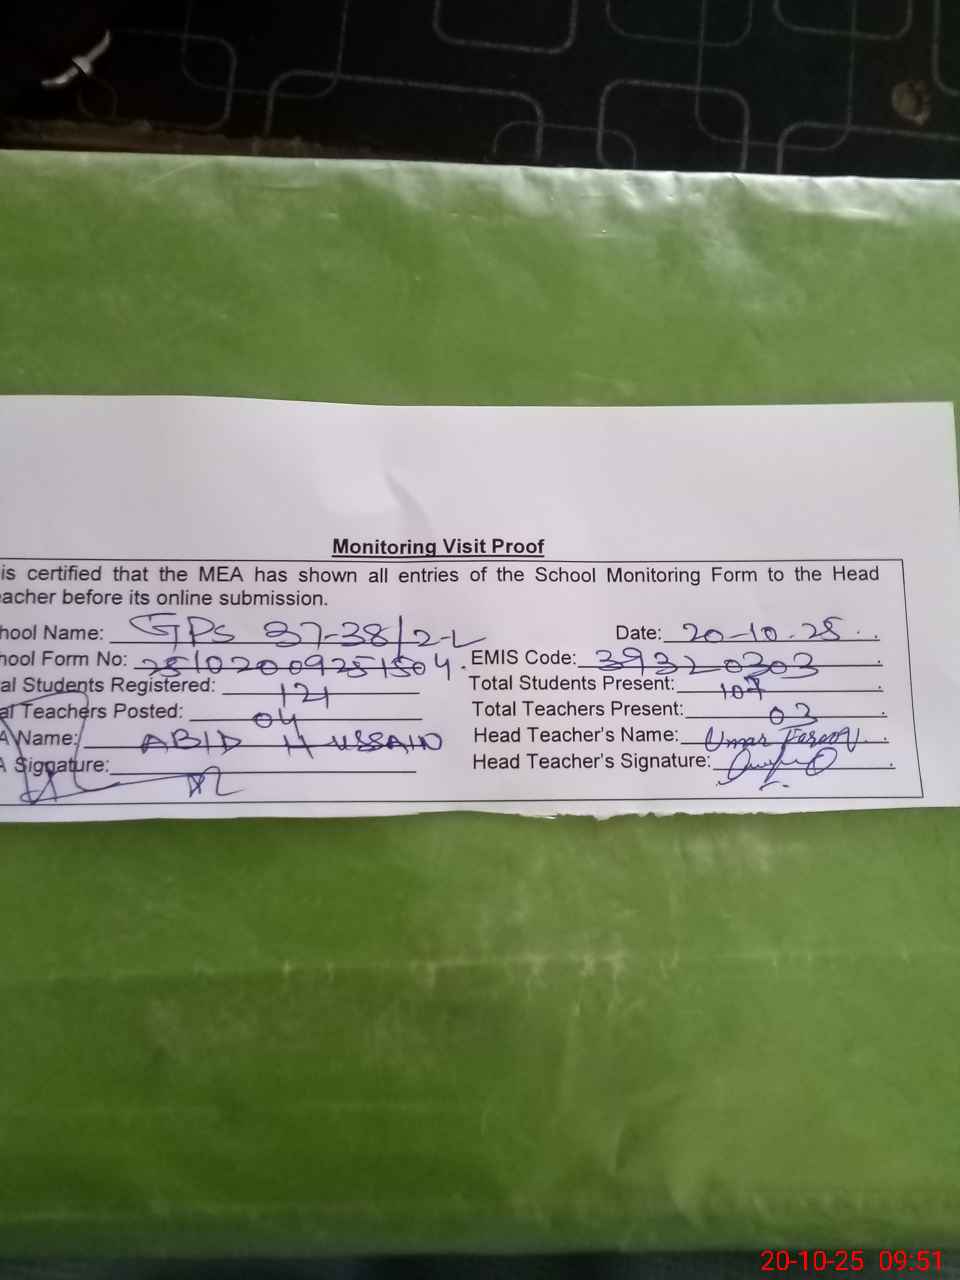 Monitoring Visit Proof
is certified that the MEA has shown all entries of the School Monitoring Form to the Head
eacher before its online submission.
hool Name: GPS 37-38/2-L Date: 20-10-25
hool Form No: 25102009251504 EMIS Code: 39320303
al Students Registered: 121 Total Students Present: 107
al Teachers Posted: 04 Total Teachers Present: 03
A Name: ABID HUSSAIN Head Teacher's Name: Umar Farooq
A Signature: Head Teacher's Signature:
20-10-25 09:51